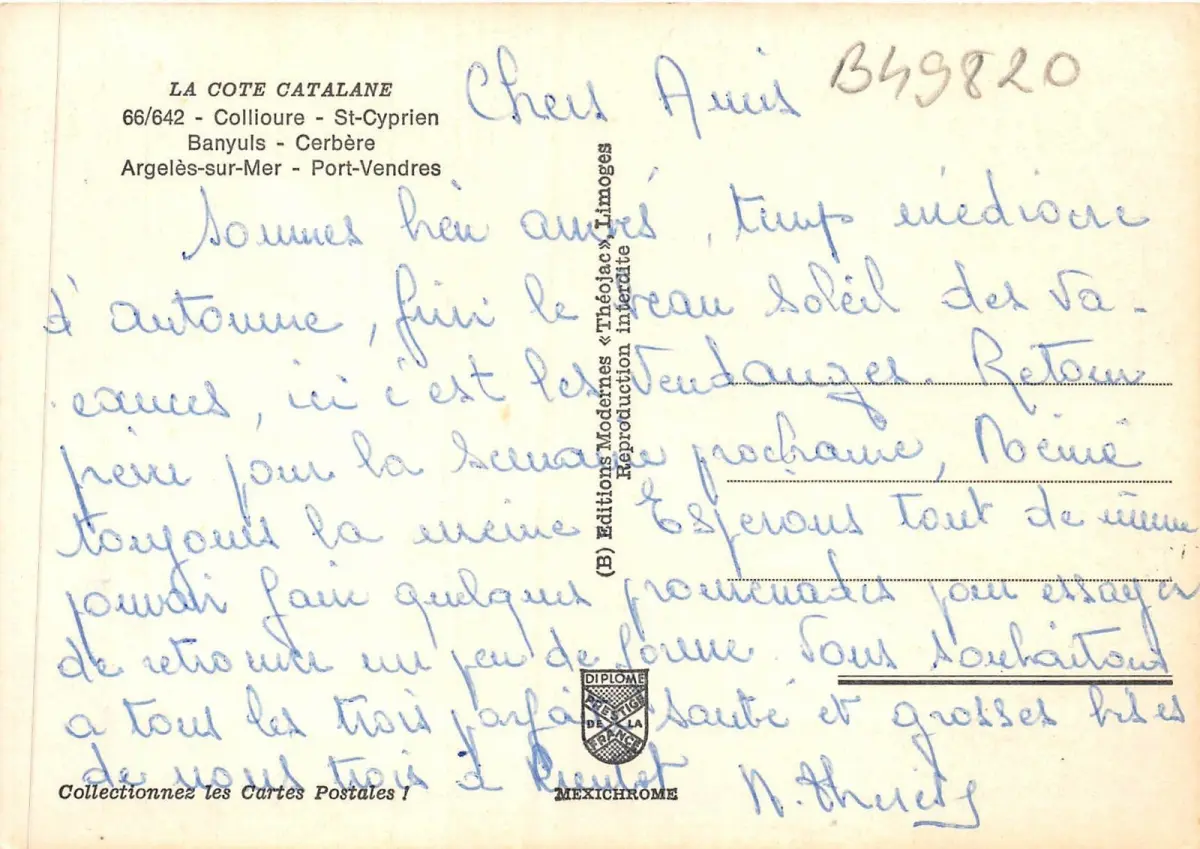 LA COTE CATALANE
66/642 - Collioure - St-Cyprien
Banyuls - Cerbère
Argelès-sur-Mer - Port-Vendres
B49820
Chers Amis
Sommes bien arrivés, temps médiocre
d'automne, fini le beau soleil des va-
cances, ici c'est les vendanges. Retour
prévu pour la semaine prochaine,
toujours la même Espérons tout de même
pouvoir faire quelques promenades pour essayer
de retrouver un peu de forme. Vous souhaitons
a tous les trois parfaite santé et grosses bises
de nous trois à bientôt
(B) Editions Modernes «Théojac», Limoges
Reproduction interdite
DIPLOME
PRESTIGE
DE LA
FRANCE
Collectionnez les Cartes Postales !
MEXICHROME